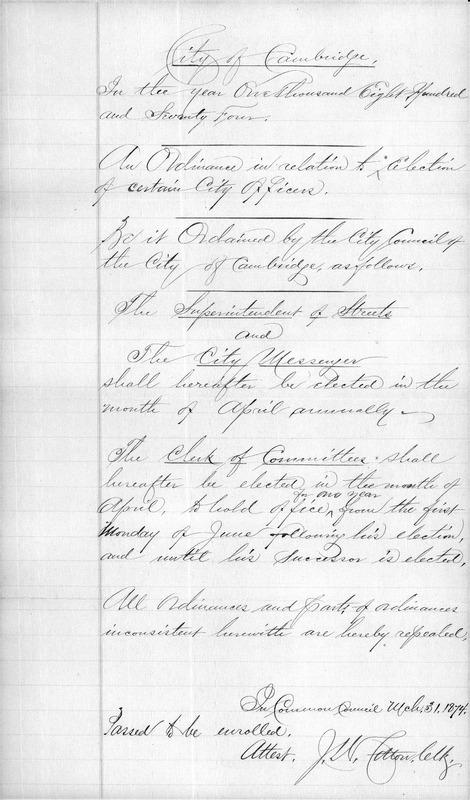 City of Cambridge.
In the year One Thousand Eight Hundred
and Seventy Four.
An Ordinance in relation to Election
of certain City Officers.
Be it Ordained by the City Council of
the City of Cambridge, as follows.
The Superintendent of Streets
and
The City Messenger
shall hereafter be elected in the
month of April annually.
The Clerk of Committees shall
hereafter be elected in the month of
for one year
April, to hold office from the first
Monday of June following his election,
and until his Successor is elected.
All Ordinances and parts of ordinances
inconsistent herewith are hereby repealed.
In Common Council Mch. 31. 1874.
Passed to be enrolled.
Attest. J. W. Cotton, Clk.